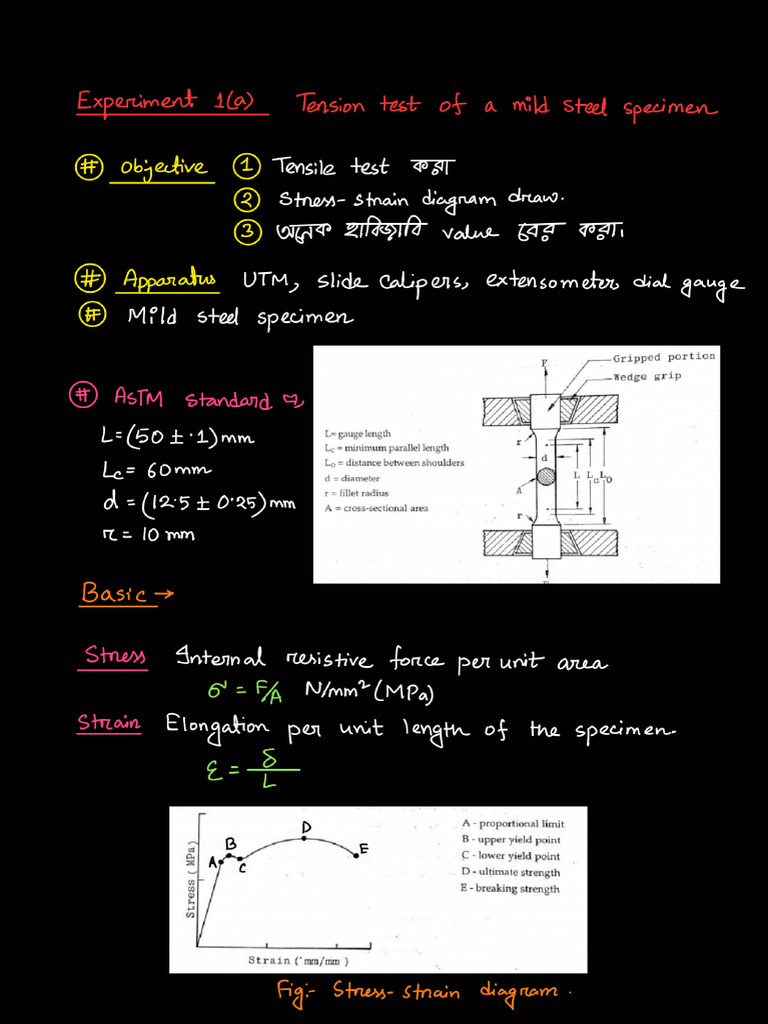 Experiment 1(a) Tension test of a mild steel specimen
# Objective ① Tensile test করা
② Stress-strain diagram draw.
③ অনেক হাবিজাবি value বের করা।
# Apparatus UTM, slide calipers, extensometer, dial gauge
# Mild steel specimen
# ASTM standard এ,
L = (50 ± .1) mm
Lc = 60 mm
d = (12.5 ± 0.25) mm
r = 10 mm
F
Gripped portion
Wedge grip
L= gauge length
Lc = minimum parallel length
Lo = distance between shoulders
d = diameter
r = fillet radius
A = cross-sectional area
r
d
A
L Lc Lo
r
Basic →
Stress Internal resistive force per unit area
σ = F/A N/mm² (MPa)
Strain Elongation per unit length of the specimen.
ε = δ/L
Stress (MPa)
A B C D E
Strain (mm/mm)
A - proportional limit
B - upper yield point
C - lower yield point
D - ultimate strength
E - breaking strength
Fig:- Stress-strain diagram.